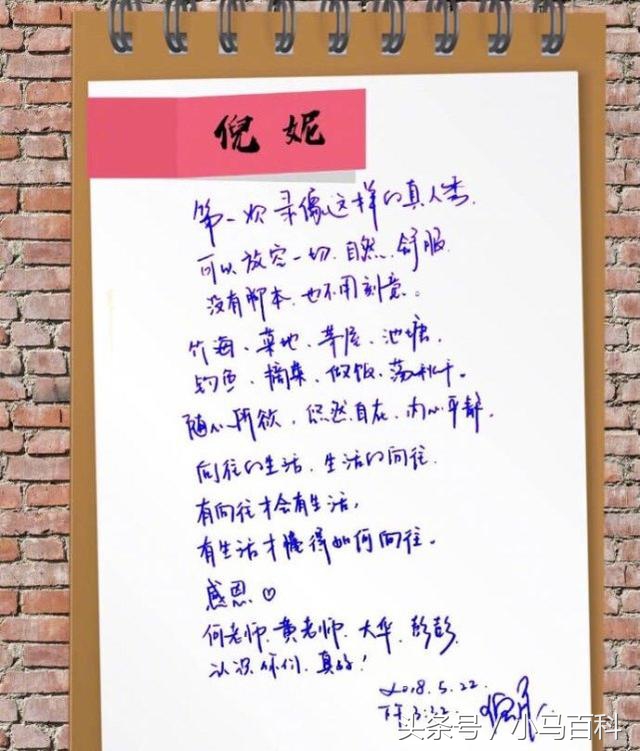 倪妮
第一次录像这样的真人秀.
可以放空一切.自然.舒服.
没有脚本.也不用刻意。
竹海、菜地、茅屋、池塘.
钓鱼、摘菜、做饭、荡秋千。
随心所欲、悠然自在、内心平静.
向往的生活.生活的向往.
有向往才会有生活,
有生活才懂得如何向往。
感恩♡
何老师.黄老师.大华.彭彭.
认识你们.真好!
2018.5.22.
下午3:22.
倪妮
头条号 / 小马百科